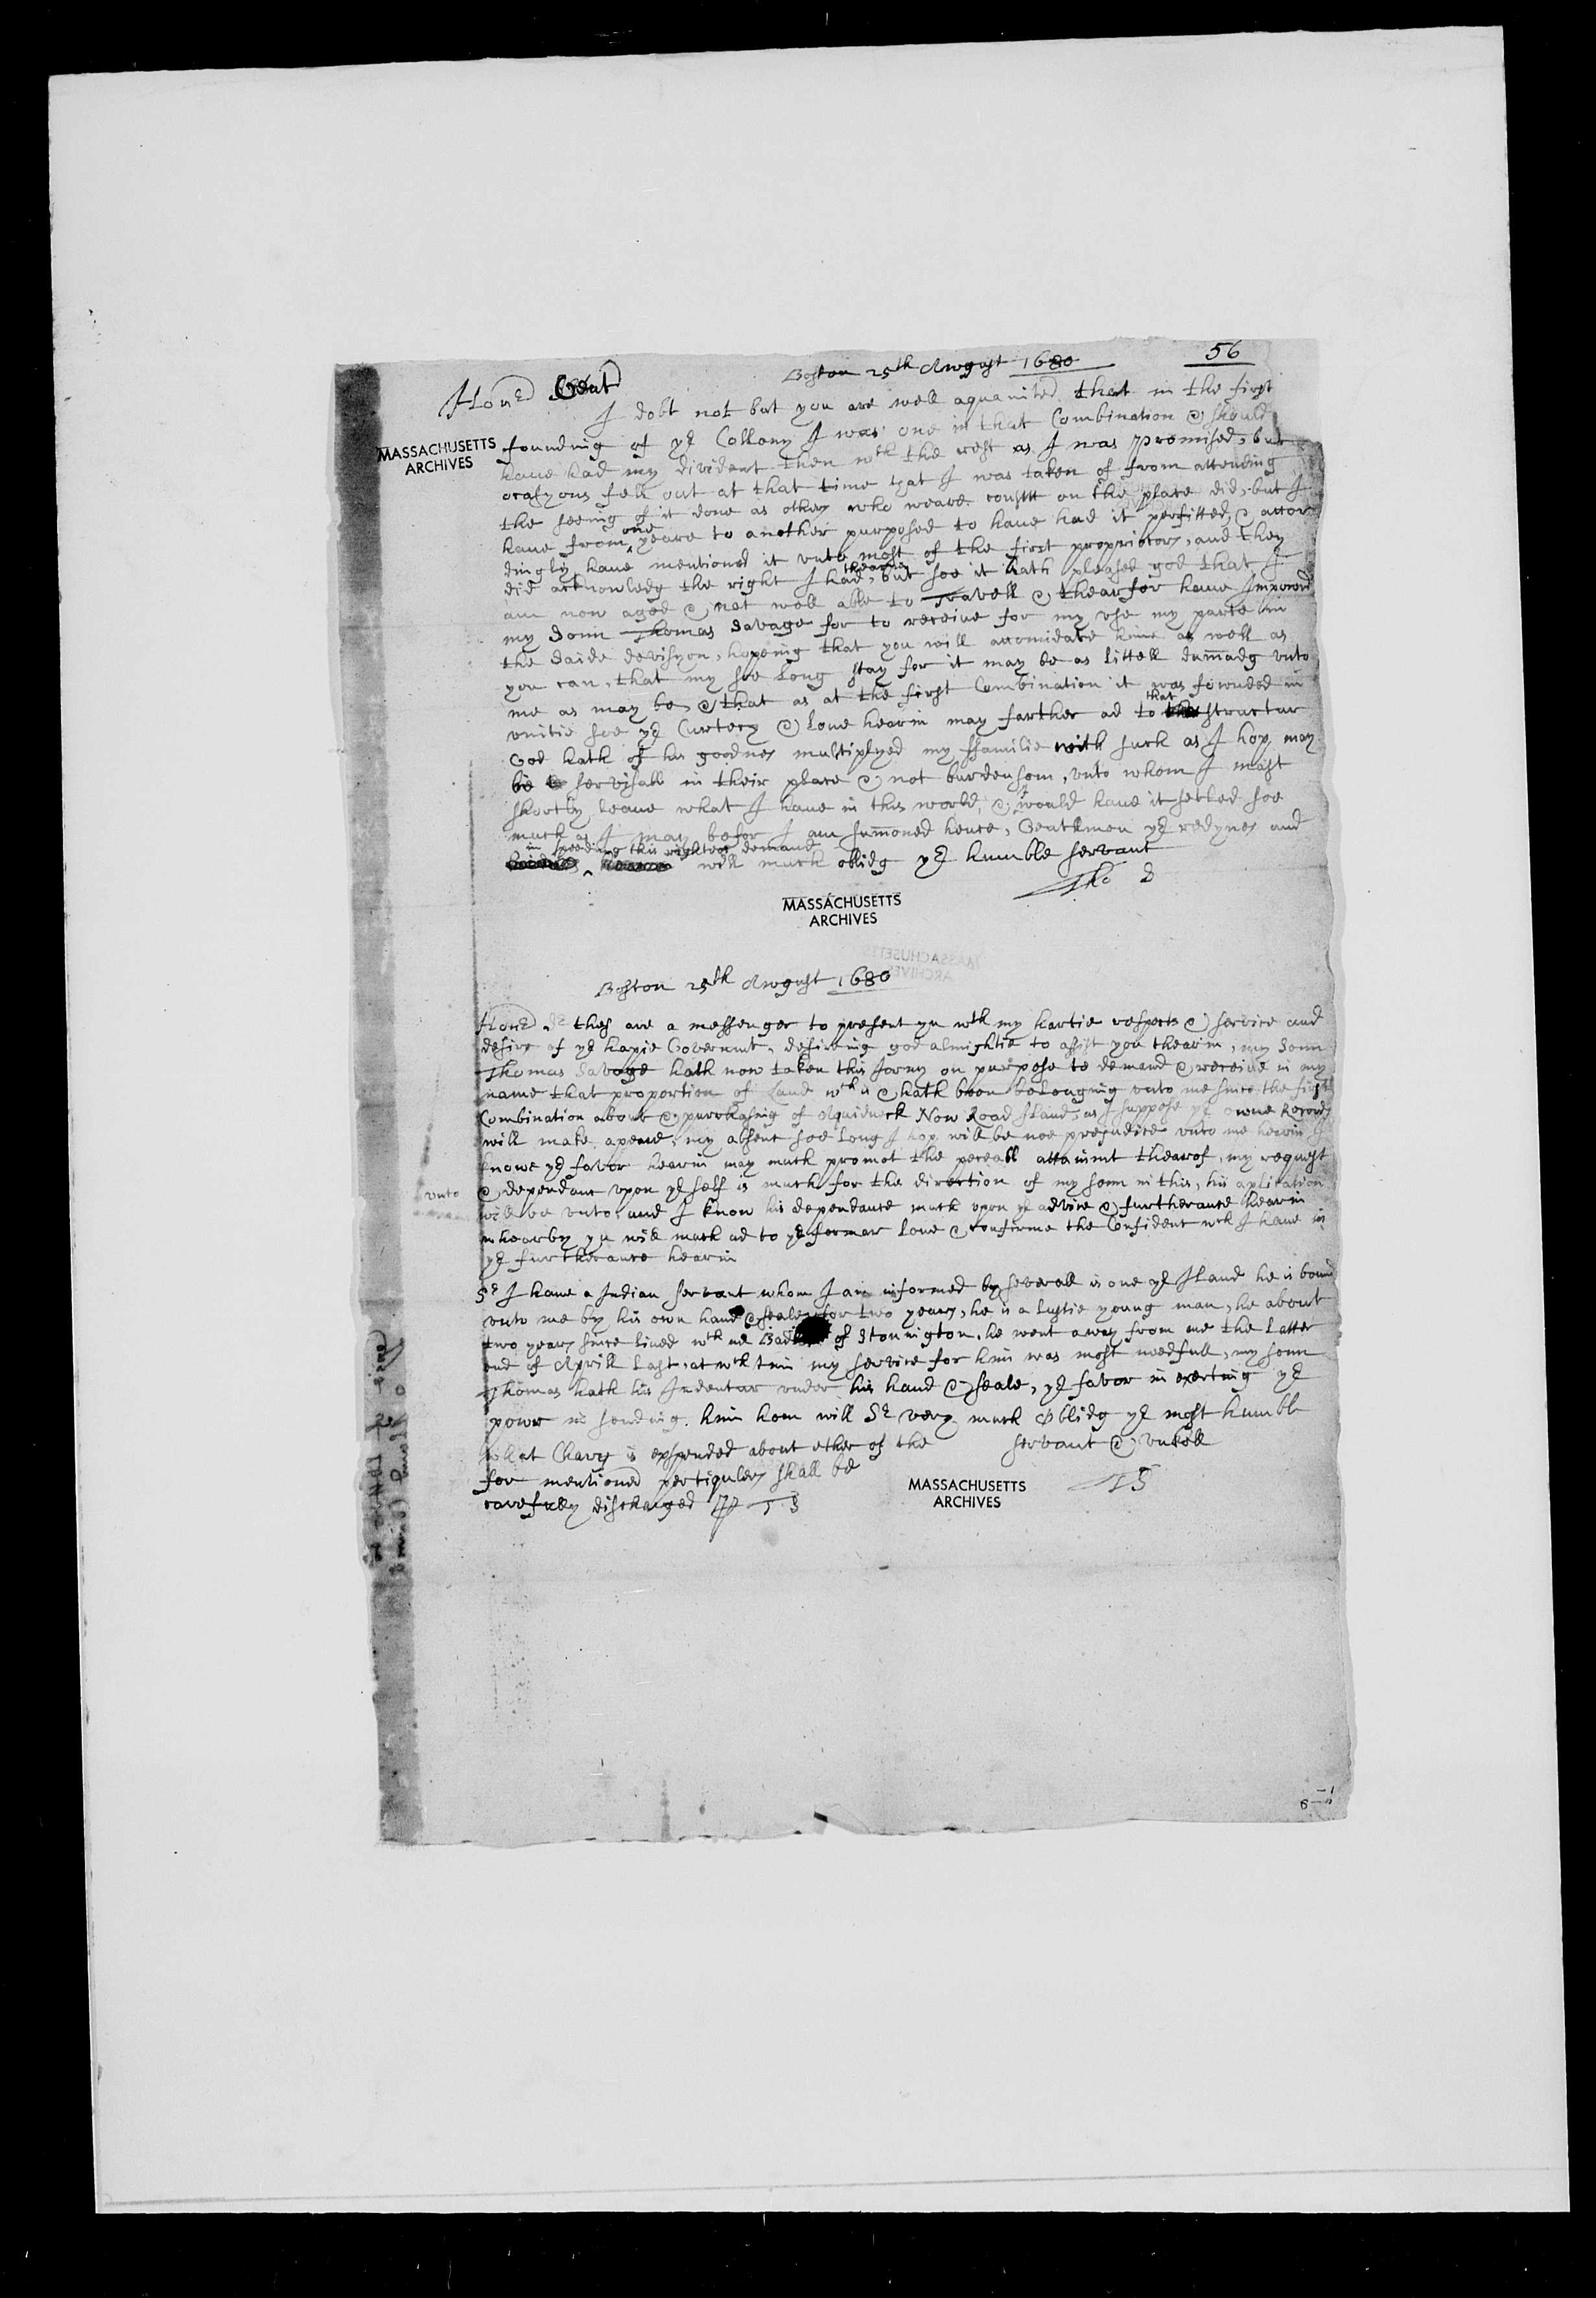 56
Boston 25th August 1680
Hond Gent
I dobt not but you are well aquainted that in the first
founding of yr Collony I was one in that Combination & should
MASSACHUSETTS
ARCHIVES
haue had my divident then wth the rest as I was promised, but
ocasyons fell out at that time that I was taken of from attending
the seeing of it done as others who weare on the place did, but I
haue from one yeare to another purposed to haue had it perfitted, & accor
dingly haue mentioned it vnto most of the first proprietors, and they
did acknowledg the right I had thearin, but soe it hath pleased god that I
am now aged & not well able to Travell & thearfor haue Impowred
my Sonn Thomas Savage for to receiue for my vse my parte in
the saide devisyon, hopeing that you will accomidate him as well as
you can, that my soe Long stay for it may be as Littell dammadg vnto
me as may be, & that as at the first Combination it was fownded in
vnitie soe yr Curtecy & Loue hearin may farther ad to that structur
God hath of his goodnes multiplyed my ffamilie with such as I hop may
be servisall in their place & not burdensom, vnto whom I must
shortly leaue what I haue in this world, & would haue it setled soe
much as I may befor I am summoned hence, Gentlmen yr redynes and
in speeding this righteos demand
will much oblidg yr humble servant
Tho S
MASSACHUSETTS
ARCHIVES
Boston 25th August 1680
Hond Sr thes are a messenger to present yu wth my hartie respects & service and
desire of yr hapie Governmt, desireing god almightie to assist you thearin, my Sonn
Thomas Savage hath now taken this Jorny on purpose to demand & receiue in my
name that proportion of Land wch is & hath been beLonging vnto me since the first
Combination about & purchasing of Aquidneck Now Road Iland, as I suppose yr owne Records
will make apeare, my absenc soe Long I hop will be noe prejudice vnto me hearin I
knowe yr favor hearin may much promot the peceabll attainmt thearof, my request
& dependanc vpon yr self is much for the direction of my sonn in this, his aplication
vnto
will be vnto, and I know his dependance much vpon yr advice & furtherance hearin
whearby yu will much ad to yr formar Loue & confirme the Confidenc wch I haue in
yr furtherance hearin
Sr I haue a Indian servant whom I am informed by severall is one yr ILand he is bound
vnto me by his own hand & seale for two years, he is a Lustie young man, he about
two years since liued wth of Stonington, he went away from me the Latter
end of Aprill Last, at wch tim my service for him was most needfull, my sonn
Thomas hath his Indentur vnder his hand & seale, yr favor in exerting yr
powr in sending him hom will Sr very much oblidg yr most humbl
servant & vnkell
TS
what Charg is expended about ether of the
for mentioned pertiqulers shall be
carefully discharged P T S
MASSACHUSETTS
ARCHIVES